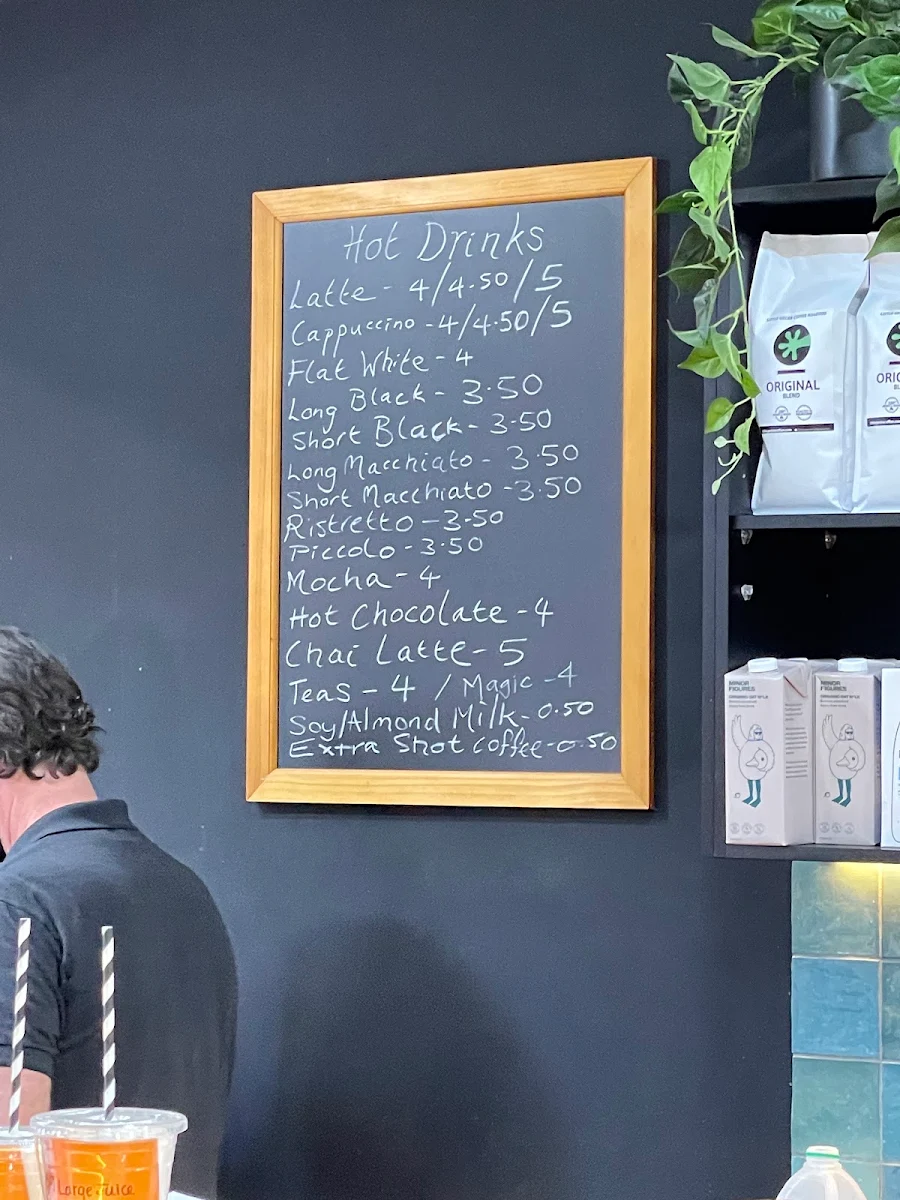 Hot Drinks
Latte - 4/4.50/5
Cappuccino - 4/4.50/5
Flat White - 4
Long Black - 3.50
Short Black - 3.50
Long Macchiato - 3.50
Short Macchiato - 3.50
Ristretto - 3.50
Piccolo - 3.50
Mocha - 4
Hot Chocolate - 4
Chai Latte - 5
Teas - 4 / Magic - 4
Soy/Almond Milk - 0.50
Extra Shot coffee - 0.50
ORIGINAL
BLEND
MINOR
FIGURES
MINOR
FIGURES
Large Juice